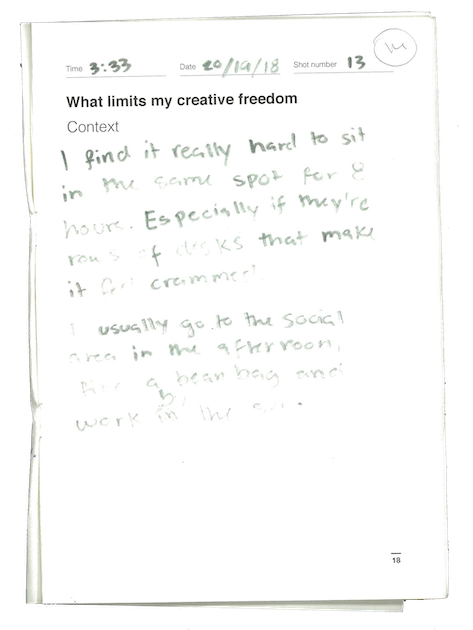 Time 3:33 Date 20/19/18 Shot number 13
What limits my creative freedom
Context
I find it really hard to sit
in the same spot for 8
hours. Especially if they're
rows of desks that make
it crammed.
I usually go to the social
area in the afternoon,
a bean bag and
work in the
18